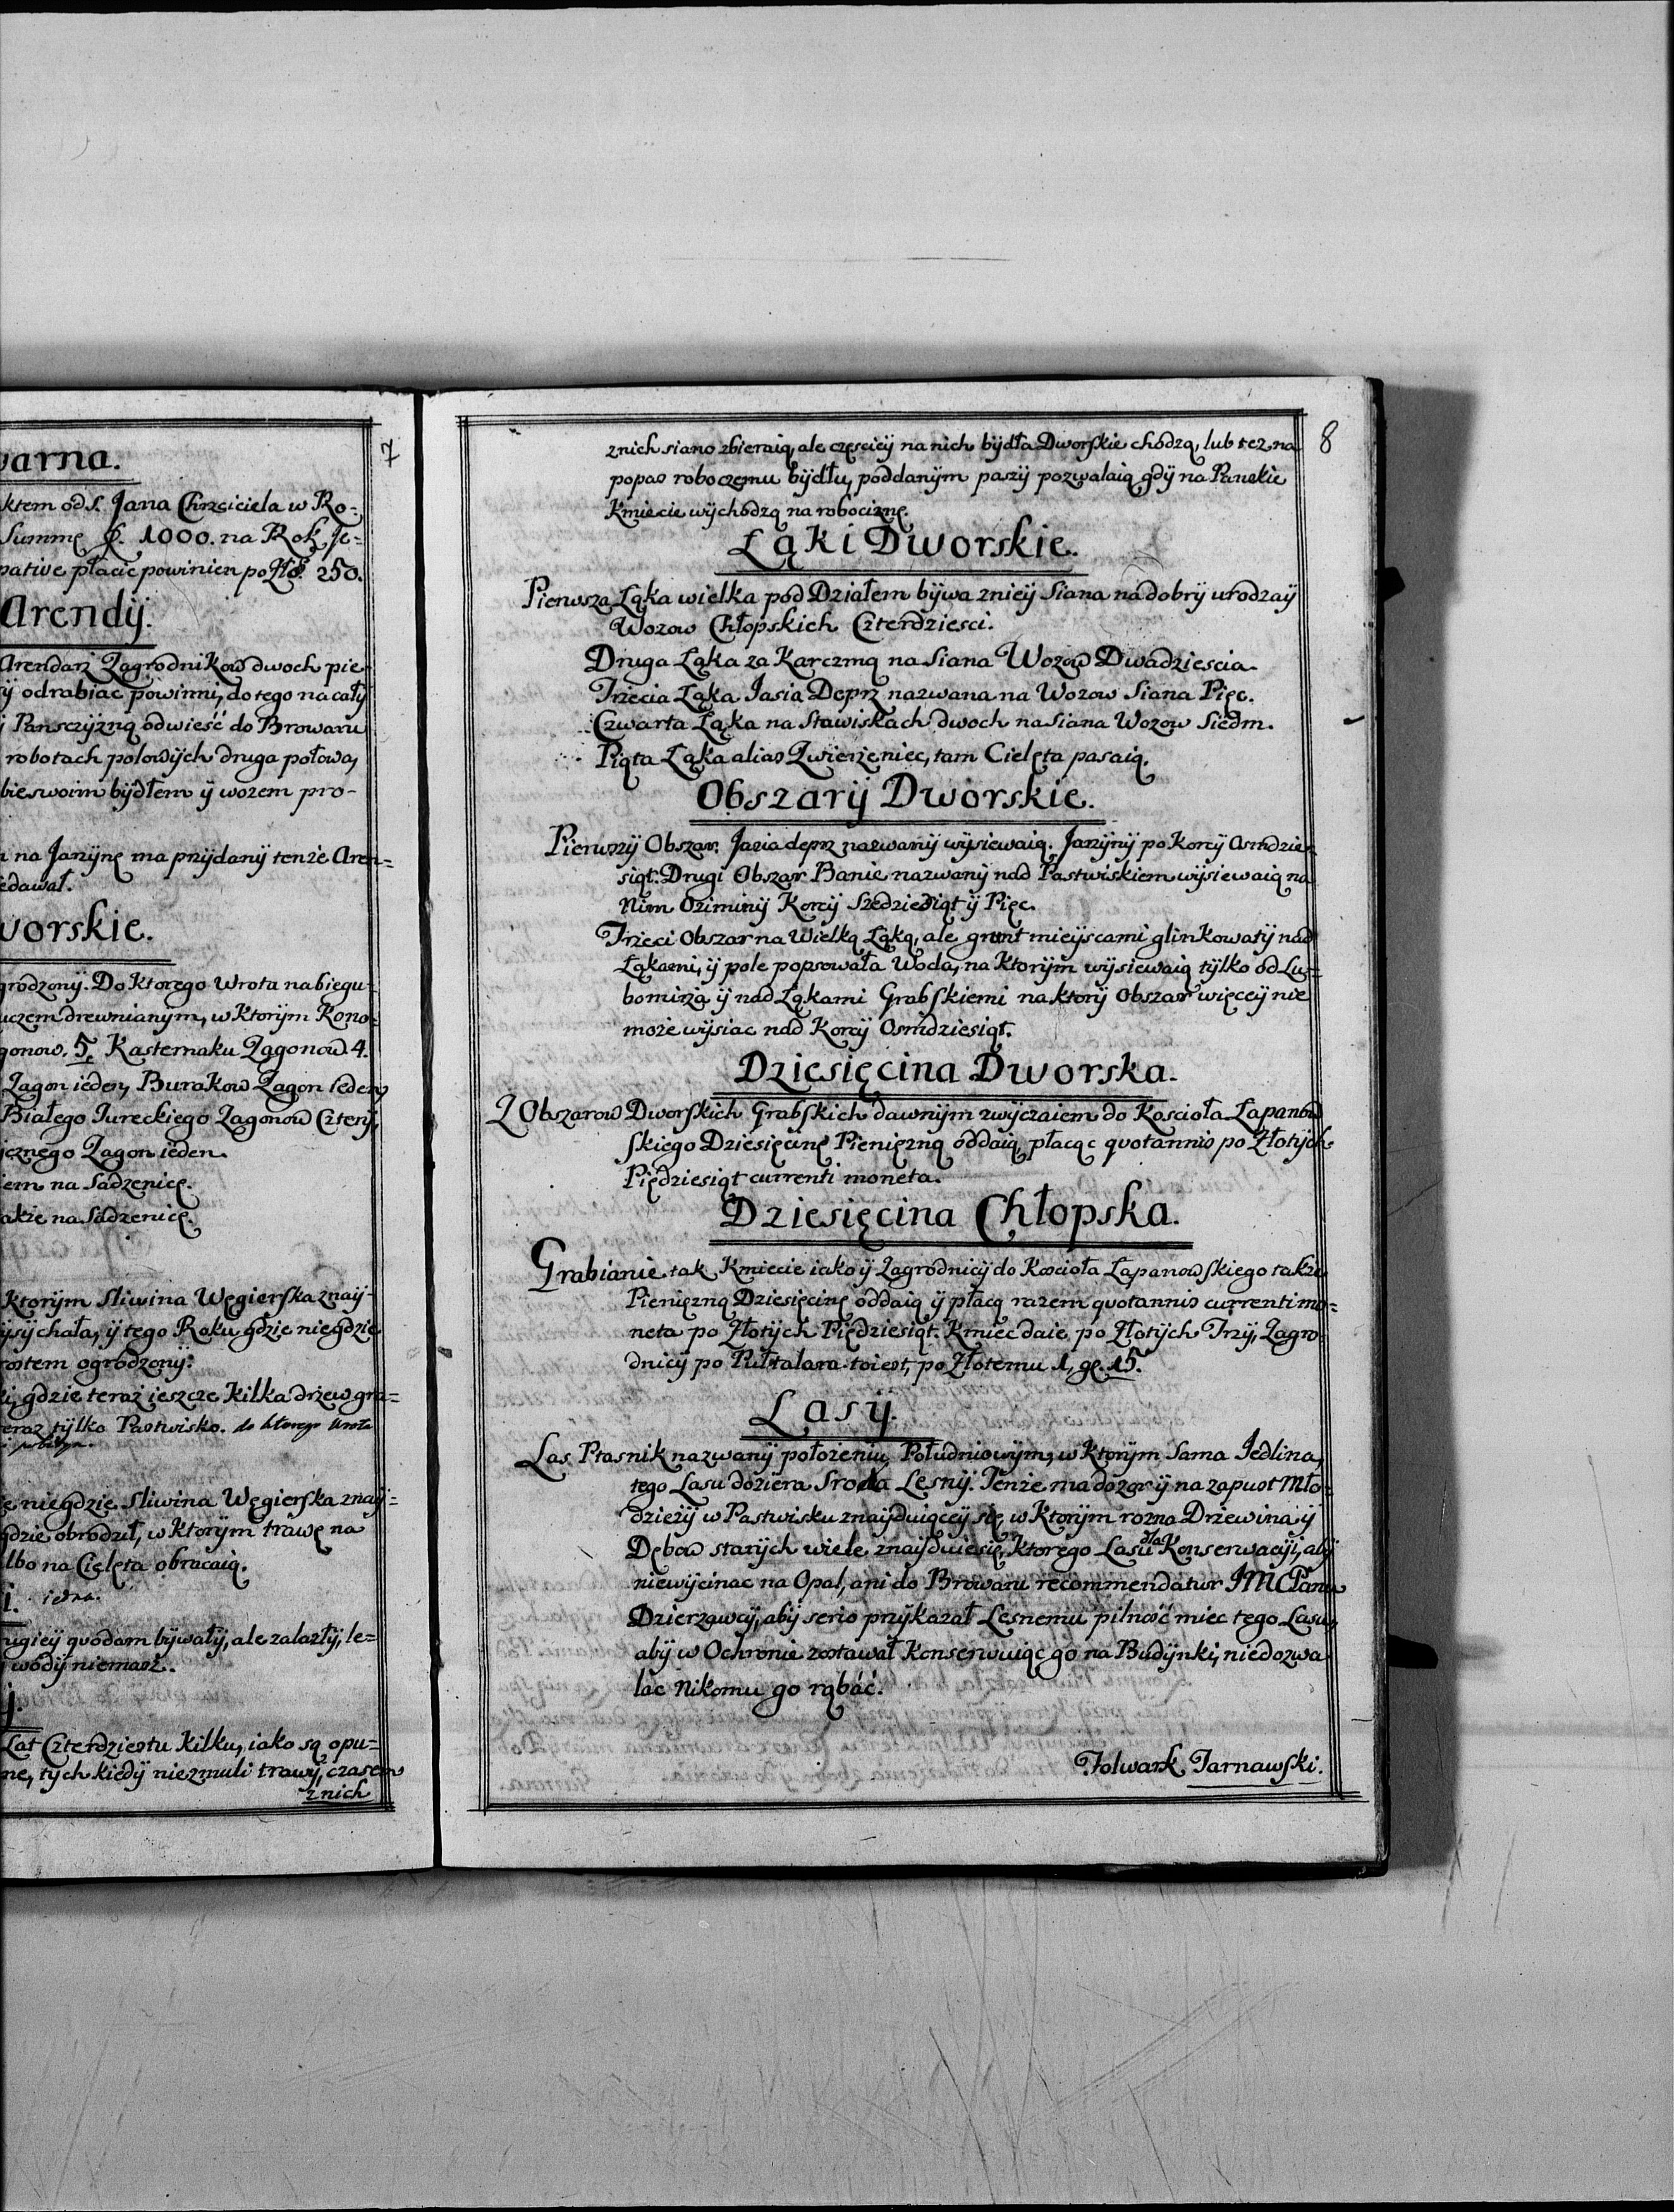 7
arna.
ktem od S. Jana Chrzciciela w Ro-
Summę f. 1000. na Rok, Je-
pative płacić powinien po Zł 250.
Arendÿ.
Arendarz Zagrodnikow dwoch pie-
ÿ odrabiac powinni, do tego na całÿ
Pansczÿzną odwieść do Browaru
robotach polowÿch druga połowa,
bie swoim bÿdłem ÿ wozem pro-
na Jarzÿnę ma przÿdanÿ tenże Aren=
edawał.
worskie.
grodzonÿ. Do ktorego Wrota na biegu-
uczem drewnianÿm, w ktorÿm Kono-
gonow. 5, Kasternaku Zagonow 4.
Zagon ieden, Burakow Zagon ieden
Białego Tureckiego Zagonow Czterÿ,
icznego Zagon ieden.
iem na Sadzenicę.
akże na Sadzenicę.
ktorÿm Sliwina Węgierska znaÿ-
ÿsÿchała, ÿ tego Roku gdzie niegdzie
rostem ogrodzonÿ.
ki, gdzie teraz ieszcze kilka drzew gru=
eraz tÿlko Pastwisko. do ktorego Wrota
e niegdzie Sliwina Węgierska znaÿ=
gdzie obrodził, w ktorÿm trawę na
lbo na Cielęta obracaią.
i.
rugieÿ quodam bÿwałÿ, ale zalazłÿ, le=
wodÿ niemasz.
Lat Czterdziestu kilku, iako są opu=
ne, tÿch kiedÿ niezmuli trawÿ, czasem
z nich
8
znich siano zbieraią, ale częsciÿ na nich bÿdła Dworskie chodzą, lub też na
popas roboczemu bÿdłu, poddanÿm paszÿ pozwalaią gdÿ na Panskie
Kmiecie wÿchodzą na robociznę.
Łąki Dworskie.
Pierwsza Łąka wielka pod Działem bÿwa znieÿ Siana na dobrÿ urodzaÿ
Wozow Chłopskich Czterdziesci.
Druga Łąka za Karczmą na Siana Wozow Dwadziescia.
Trzecia Łąka Jasia Deprz nazwana na Wozow Siana Pięc.
Czwarta Łąka na Stawiskach dwoch na Siana Wozow Siedm.
Piąta Łąka alias Zwierzeniec, tam Cielęta pasaią.
Obszarÿ Dworskie.
Pierwszÿ Obszar Jasia deprz nazwanÿ wÿsiewaią. Jarzÿnÿ po Korcÿ Osmdzie-
siąt. Drugi Obszar Banie nazwanÿ nad Pastwiskiem wÿsiewaią na
Nim Oziminÿ Korcÿ Szedziesiąt ÿ Pięc.
Trzeci Obszar na Wielką Łąką, ale grunt mieÿscami glinkowatÿ nad
Łąkami, ÿ pole popsowała Woda, na ktorÿm wÿsiewaią tÿlko od Lu-
bomirza ÿ nad Łąkami Grabskiemi na ktorÿ Obszar więceÿ nie
może wÿsiac nad Korcÿ Osmdziesiąt.
Dziesięcina Dworska.
Z Obszarow Dworskich Grabskich dawnÿm zwÿczaiem do Koscioła Łapanow
skiego Dziesięcinę Pieniężną oddaią, płacąc quotannis po Złotÿch
Pięćdziesiąt currenti moneta.
Dziesięcina Chłopska.
Grabianie tak Kmiecie iako ÿ Zagrodnicÿ do Koscioła Łapanowskiego także
Pieniężną Dziesięcinę oddaią ÿ płacą razem quotannis currenti mo=
neta po Złotÿch Pięćdziesiąt. Kmiec daie po Złotÿch Trzÿ, Zagro-
dnicÿ po Puł talara toiest, po Złotemu 1, gr. 15.
Lasÿ.
Las Ptasnik nazwanÿ położeniu Południowÿm, w ktorÿm Sama Jedlina,
tego Lasu doziera Sroka Lesnÿ. Tenże ma dozor ÿ na zapust Mło-
dzieżÿ w Pastwisku znaÿduiąceÿ się, w ktorÿm rozna Drzewina ÿ
Dębow starÿch wiele znaÿduie się, ktorego Lasu dla Konserwacÿi, abÿ
niewÿcinac na Opał, ani do Browaru recommendatur JMC Panu
Dzierzawcÿ, abÿ serio przÿkazał Lesnemu pilność miec tego Lasu,
abÿ w Ochronie zostawał Konserwuiąc go na Budÿnki, niedozwa-
lać Nikomu go rąbać.
Folwark Tarnawski.